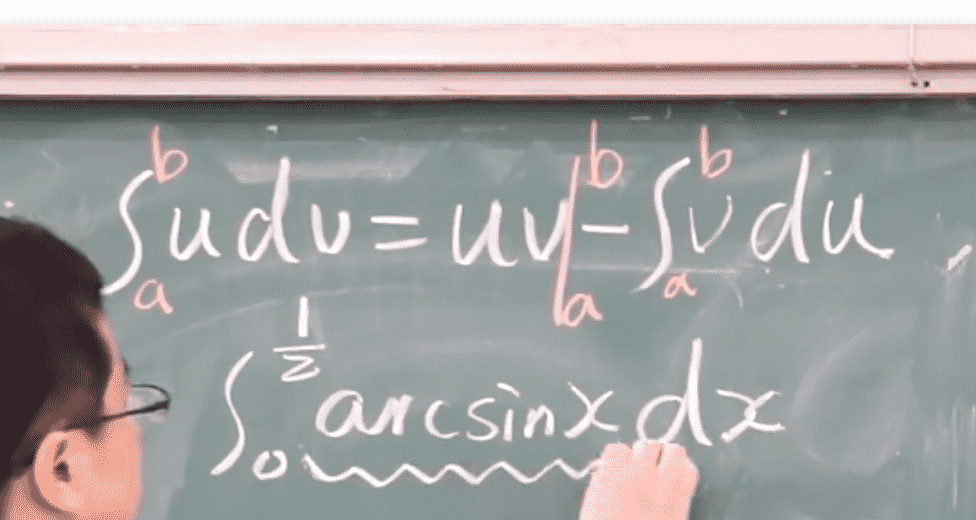 ∫ₐᵇ u dv = uv|ₐᵇ − ∫ₐᵇ v du
∫₀^½ arcsinx dx